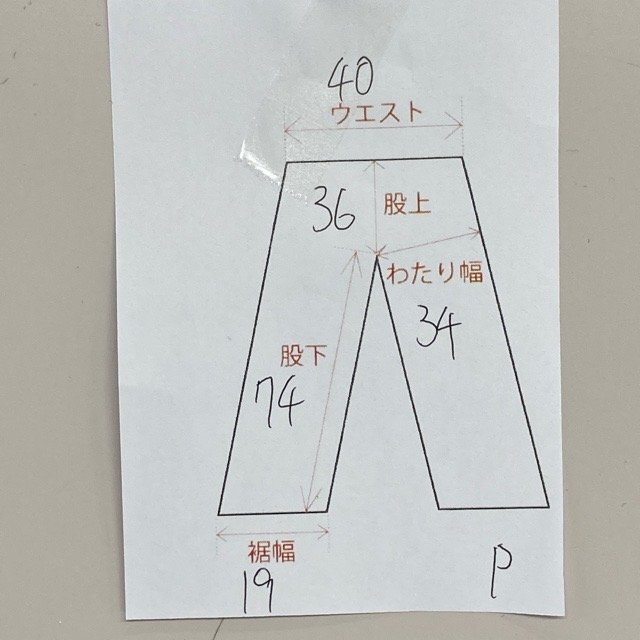 40
ウエスト
36
股上
わたり幅
34
股下
74
裾幅
19
P